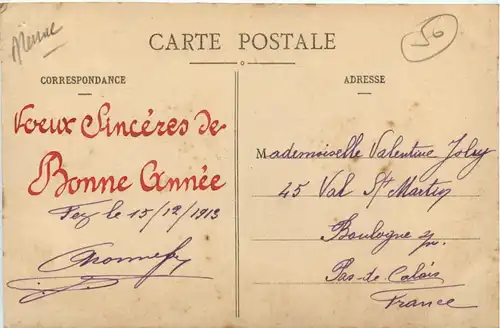 Maroc
50
CARTE POSTALE
CORRESPONDANCE
ADRESSE
Voeux Sincéres de
Bonne Année
Fez le 15/12/1913
Mademoiselle Valentine Joly
45 Val St Martin
Boulogne s/m.
Pas-de-Calais
France